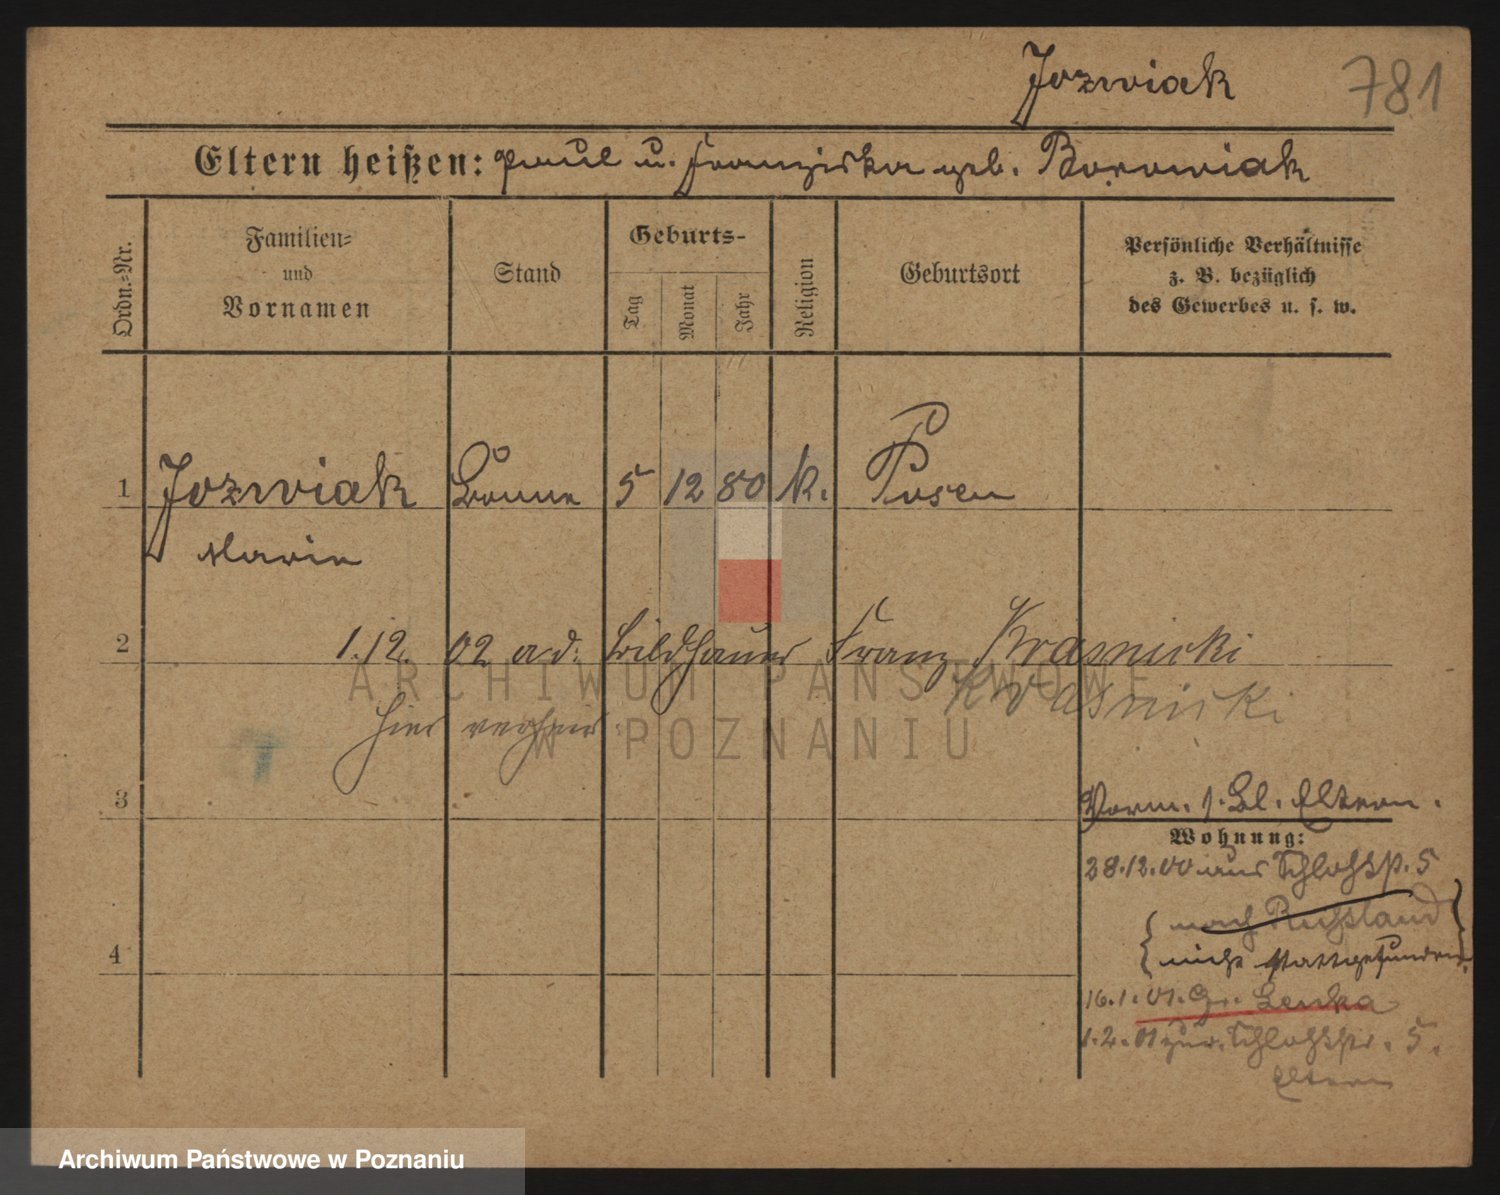 Jozwiak 781
Eltern heißen: Paul u. Franziska geb. Borowiak
Ordn.-Nr.
Familien-
und
Vornamen
Stand
Geburts-
Tag
Monat
Jahr
Religion
Geburtsort
Persönliche Verhältnisse
z. B. bezüglich
des Gewerbes u. s. w.
1 Jozwiak Bonne 5 12 80 k. Posen
Marie
2 1.12. 02 a.d. Bildhauer Franz Krasnicki
Krasnicki
hier verheir.
3
Vorm. s. Bl. Eltern.
Wohnung:
28.12.00 aus Schloßstr. 5
nach Russland
4
nicht stattgefunden.
16.1.01. Gr. Lenka
1.2.01 zur. Schloßstr. 5.
Eltern
ARCHIWUM PAŃSTWOWE
W POZNANIU
Archiwum Państwowe w Poznaniu